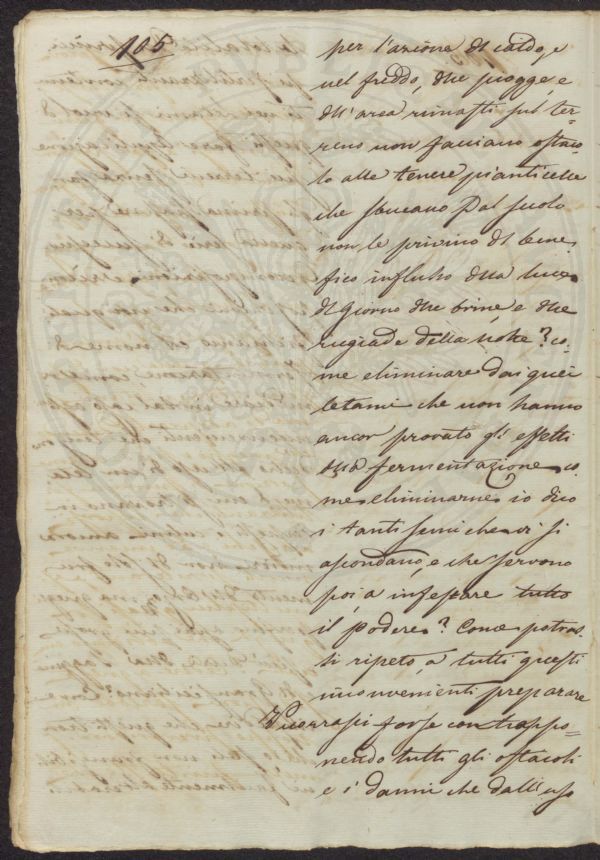 105
per l'azione di caldo, e
nel freddo, dlle piogge, e
dll'area rimasti sul ter-
reno non facciano osta-
lo alle tenere pianticelle
che sbucano dal suolo
non le privino dl bene
fico influsso dlla luce
dl giorno dlle brine, e dlle
rugiade della notte? co-
me eliminare dai quei
letami che non hanno
ancor provato gli effetti
dlla fermentazione, co-
me eliminarne, io dico
i tanti semi che vi si
ascondano, e che servono
poi, a infestare tutto
il podere? Come potras-
si ripeto, a tutti questi
inconvenienti preparare
Vuorrassi forse contrappo-
nendo tutti gli ostacoli
e i danni che dall'uso